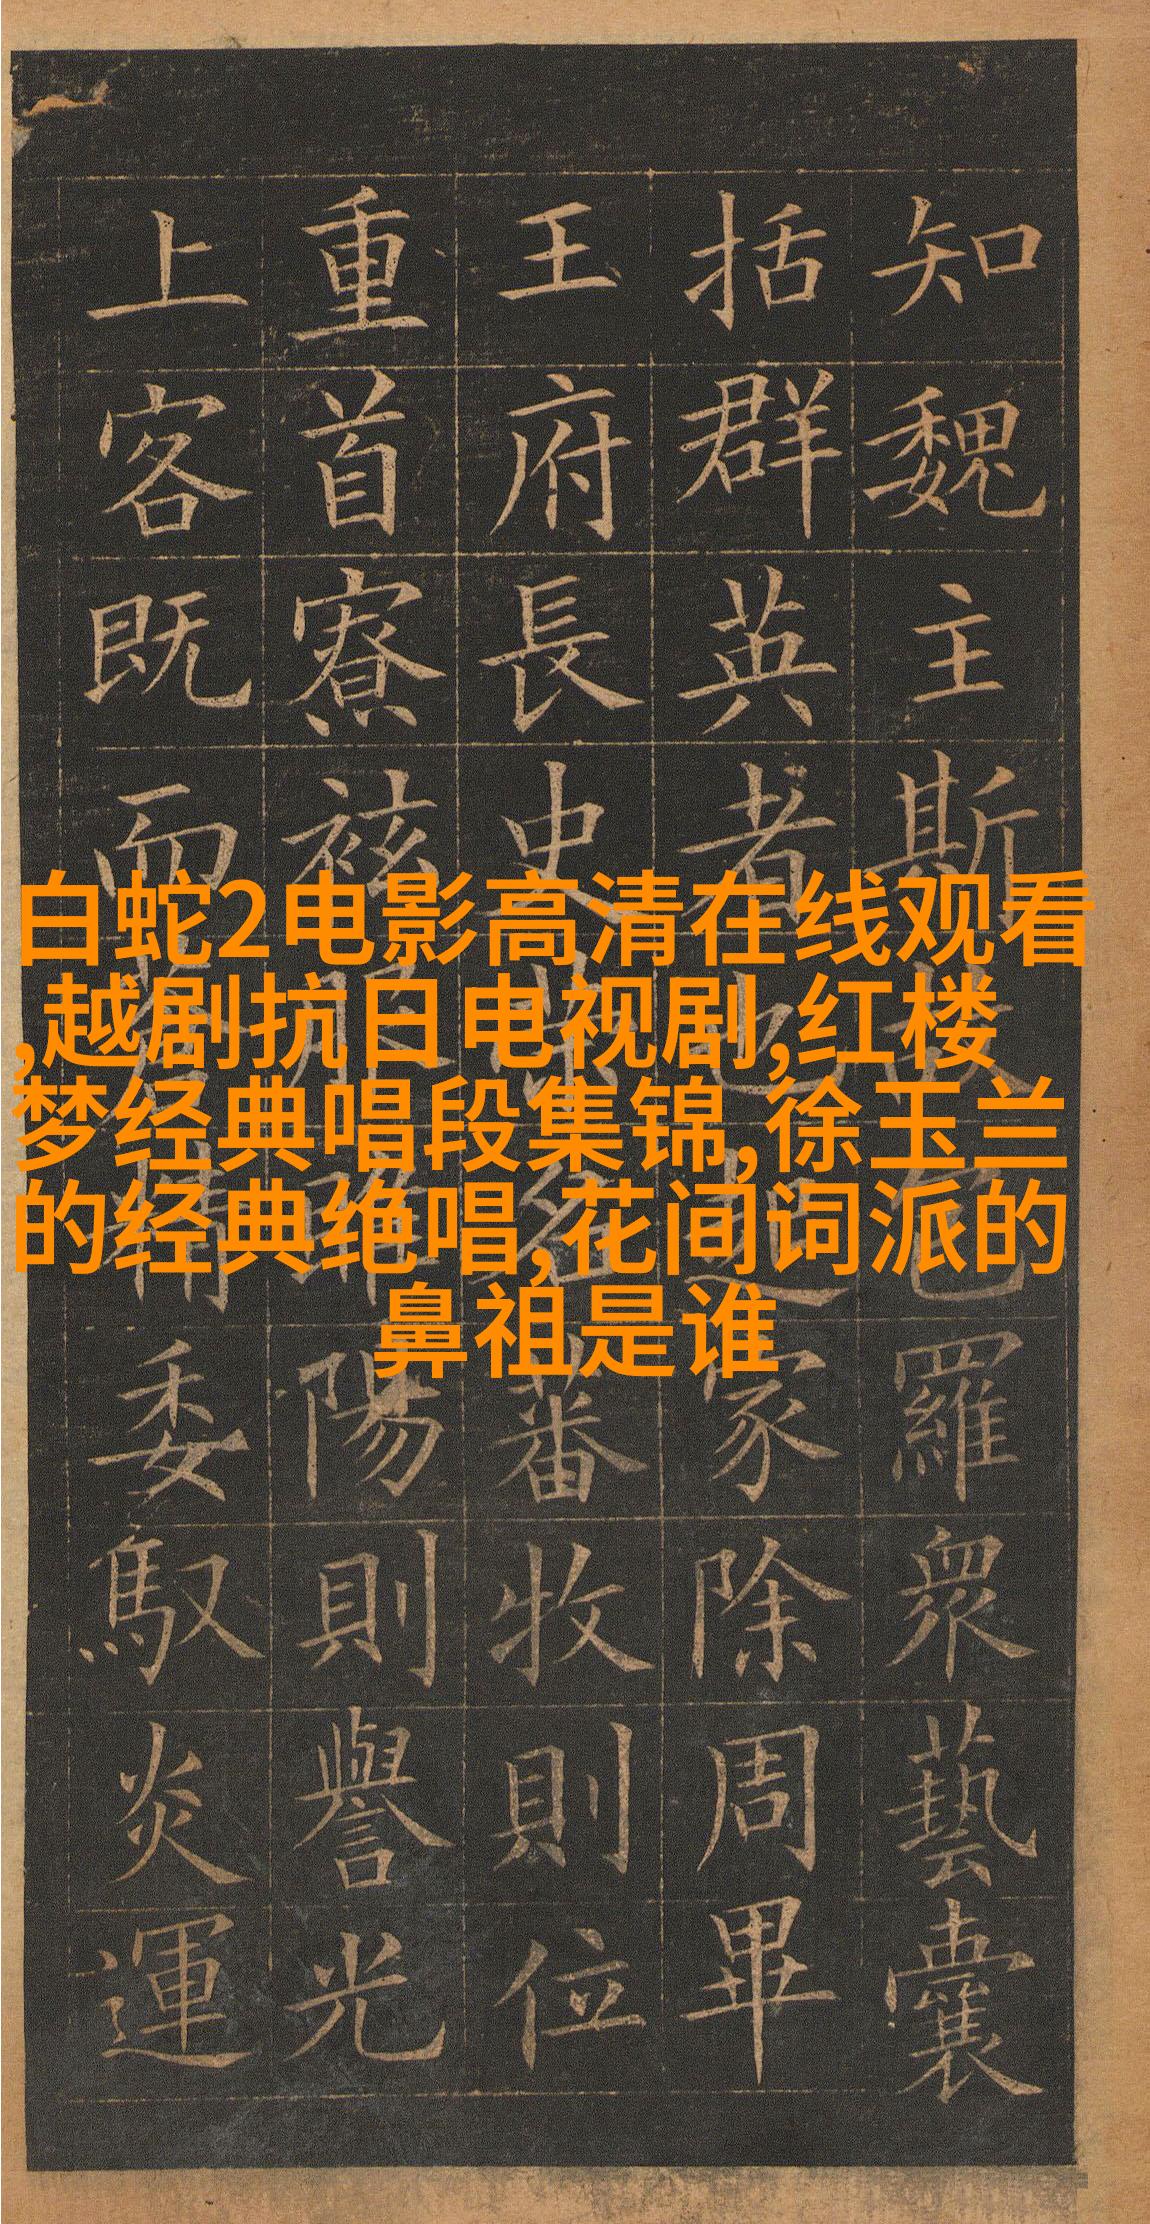 知魏主斯包羅衆藝囊
括群英者也起家除周畢
王府長史名蕃牧則位
重首寮袨服睢陽則譽光
上客既而精委馭炎運
白蛇2电影高清在线观看
,越剧抗日电视剧,红楼
梦经典唱段集锦,徐玉兰
的经典绝唱,花间词派的
鼻祖是谁